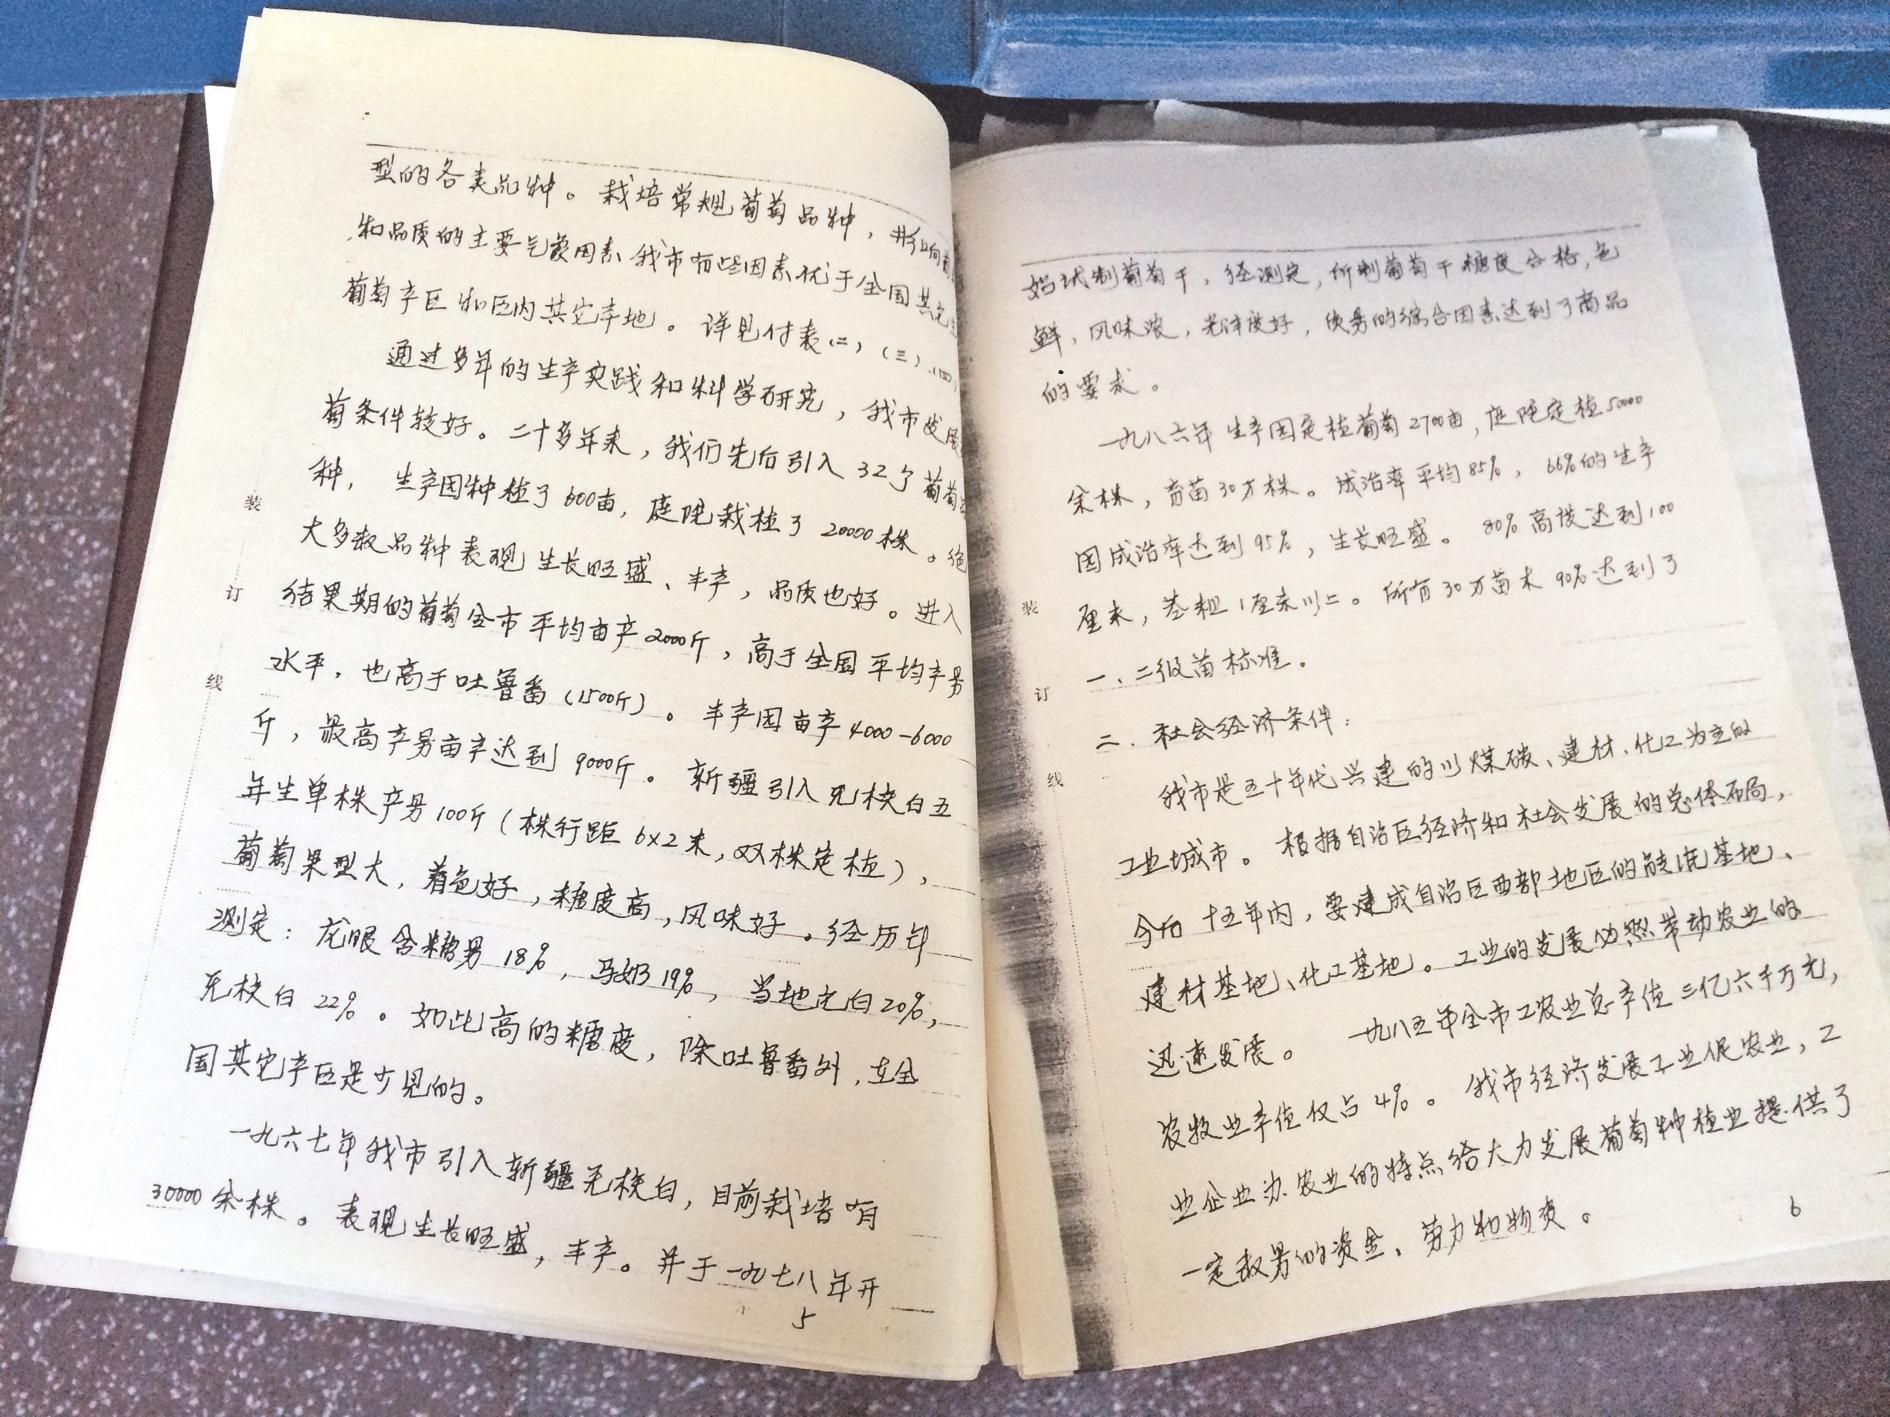 型的各类品种。栽培常规葡萄品种，影响
和品质的主要气象因素我市有些因素优于全国其它
葡萄产区和区内其它产地。详见付表(二)(三)(四)
通过多年的生产实践和科学研究，我市发展
萄条件较好。二十多年来，我们先后引入32个葡萄
种，生产园种植了600亩，庭院栽植了20000株。绝
大多数品种表现生长旺盛、丰产，品质也好。进入
结果期的葡萄全市平均亩产2000斤，高于全国平均产量
水平，也高于吐鲁番(1500斤)。丰产园亩产4000-6000
斤，最高产量亩产达到9000斤。新疆引入无核白五
年生单株产量100斤(株行距6×2米,双株定植)，
葡萄果型大，着色好，糖度高，风味好。经历年
测定：龙眼含糖量18%，马奶19%，当地土白20%，
无核白22%。如此高的糖度，除吐鲁番外，在全
国其它产区是少见的。
一九六七年我市引入新疆无核白，目前栽培有
30000余株。表现生长旺盛，丰产。并于一九七八年开
5
装
订
线
始试制葡萄干，经测定，所制葡萄干糖度合格，色
鲜，风味浓，光泽度好，质量的综合因素达到了商品
的要求。
一九八六年生产园定植葡萄2700亩，庭院定植50000
余株，育苗30万株。成活率平均85%，66%的生产
园成活率达到95%，生长旺盛。80%高度达到100
厘米，茎粗1厘米以上。所有30万苗木90%达到了
一、二级苗标准。
二、社会经济条件：
我市是五十年代兴建的以煤碳、建材、化工为主的
工业城市。根据自治区经济和社会发展的总体布局，
今后十五年内，要建成自治区西部地区的能源基地、
建材基地、化工基地。工业的发展必然带动农业的
迅速发展。一九八五年全市工农业总产值三亿六千万元，
农牧业产值仅占4%。我市经济发展工业促农业，工
业企业办农业的特点给大力发展葡萄种植业提供了
一定数量的资金、劳力和物资。
6
装
订
线